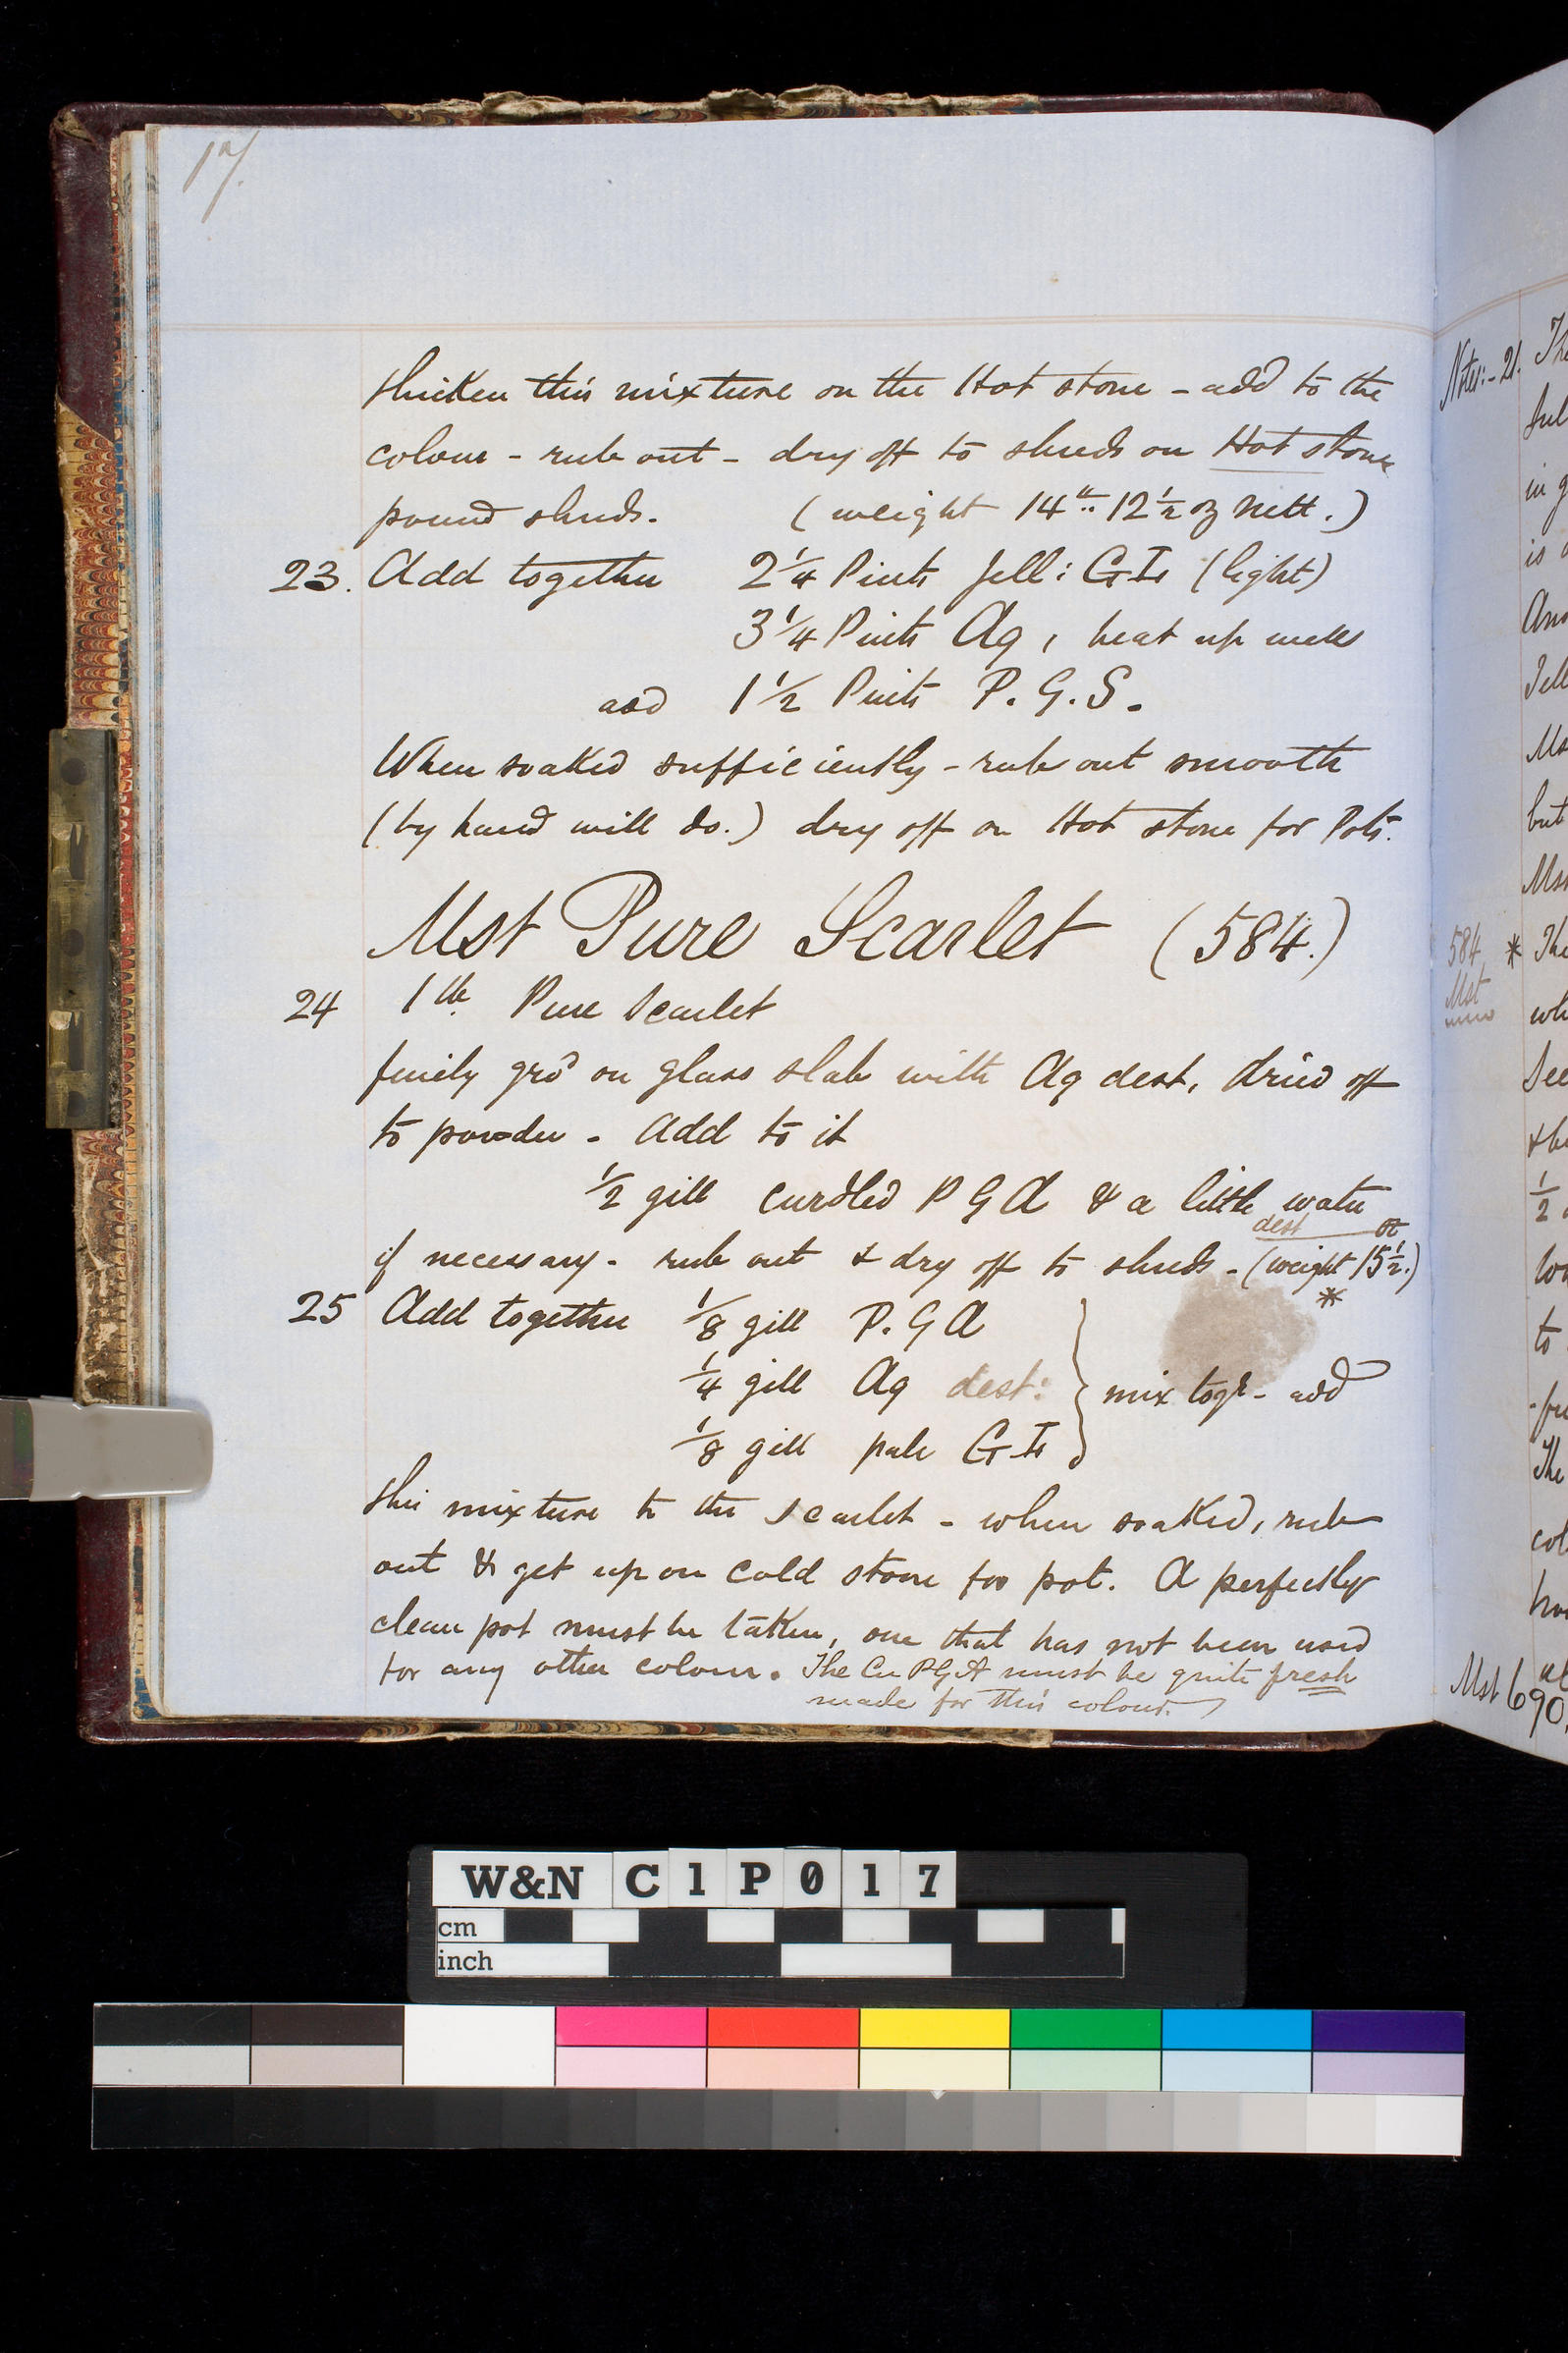 17/.
thicken this mixture on the Hot stone - add to the
colour - rub out - dry off to shreds on Hot stone
pound shreds. (weight 14 lb.. 12 1/2 oz nett.)
23. Add together 2 1/4 Pints Jell: GIs (light)
3 1/4 Pints Aq, heat up well
add 1 1/2 Pints P.G.S.
When soaked sufficiently - rub out smooth
(by hand will do.) dry off on Hot stone for Pots.
Mst Pure Scarlet (584.)
24 1 lb. Pure Scarlet
finely grd on glass slab with Aq dest, dried off
to powder - Add to it
1/2 gill curdled P G A & a little water
dest oz
if necessary - rub out & dry off to shreds - (weight 15 1/2.)
*
25 Add together 1/8 gill P.G A
1/4 gill Aq dest: } mix togr - add
1/8 gill pale GIs
this mixture to the scarlet - when soaked, rub
out & get up on cold stone for pot. A perfectly
clean pot must be taken, one that has not been used
for any other colour. The Cu PGA must be quite fresh
made for this colour.
Notes:- 21. The
in g
is
Ms
but
584 * The
Mst
wh
See
1/2
to
The
col
Mst 690.
W&N C1P017
cm
inch